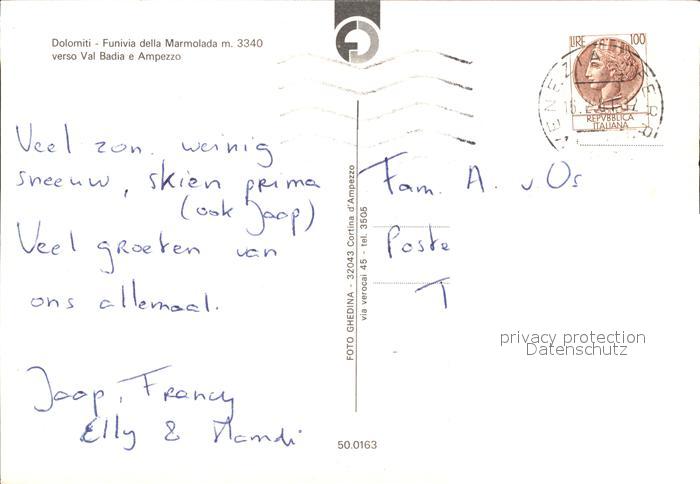 Dolomiti - Funivia della Marmolada m. 3340
verso Val Badia e Ampezzo
LIRE 100
REPVBBLICA
ITALIANA
VENEZIA
Veel zon. weinig
sneeuw, skiën prima
(ook Jaap)
Veel groeten van
ons allemaal.
Jaap, Francy
Elly &
FOTO GHEDINA - 32043 Cortina d'Ampezzo
via verocai 45 - tel. 3505
Fam. A. v Os
Poste
T
privacy protection
Datenschutz
50.0163